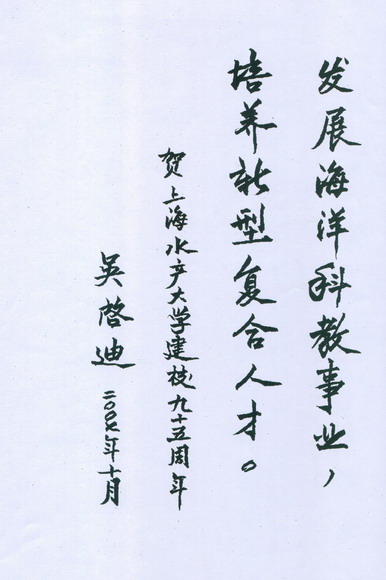 发展海洋科教事业，
培养新型复合人才。
贺上海水产大学建校九十五周年
吴启迪
二〇〇七年十月